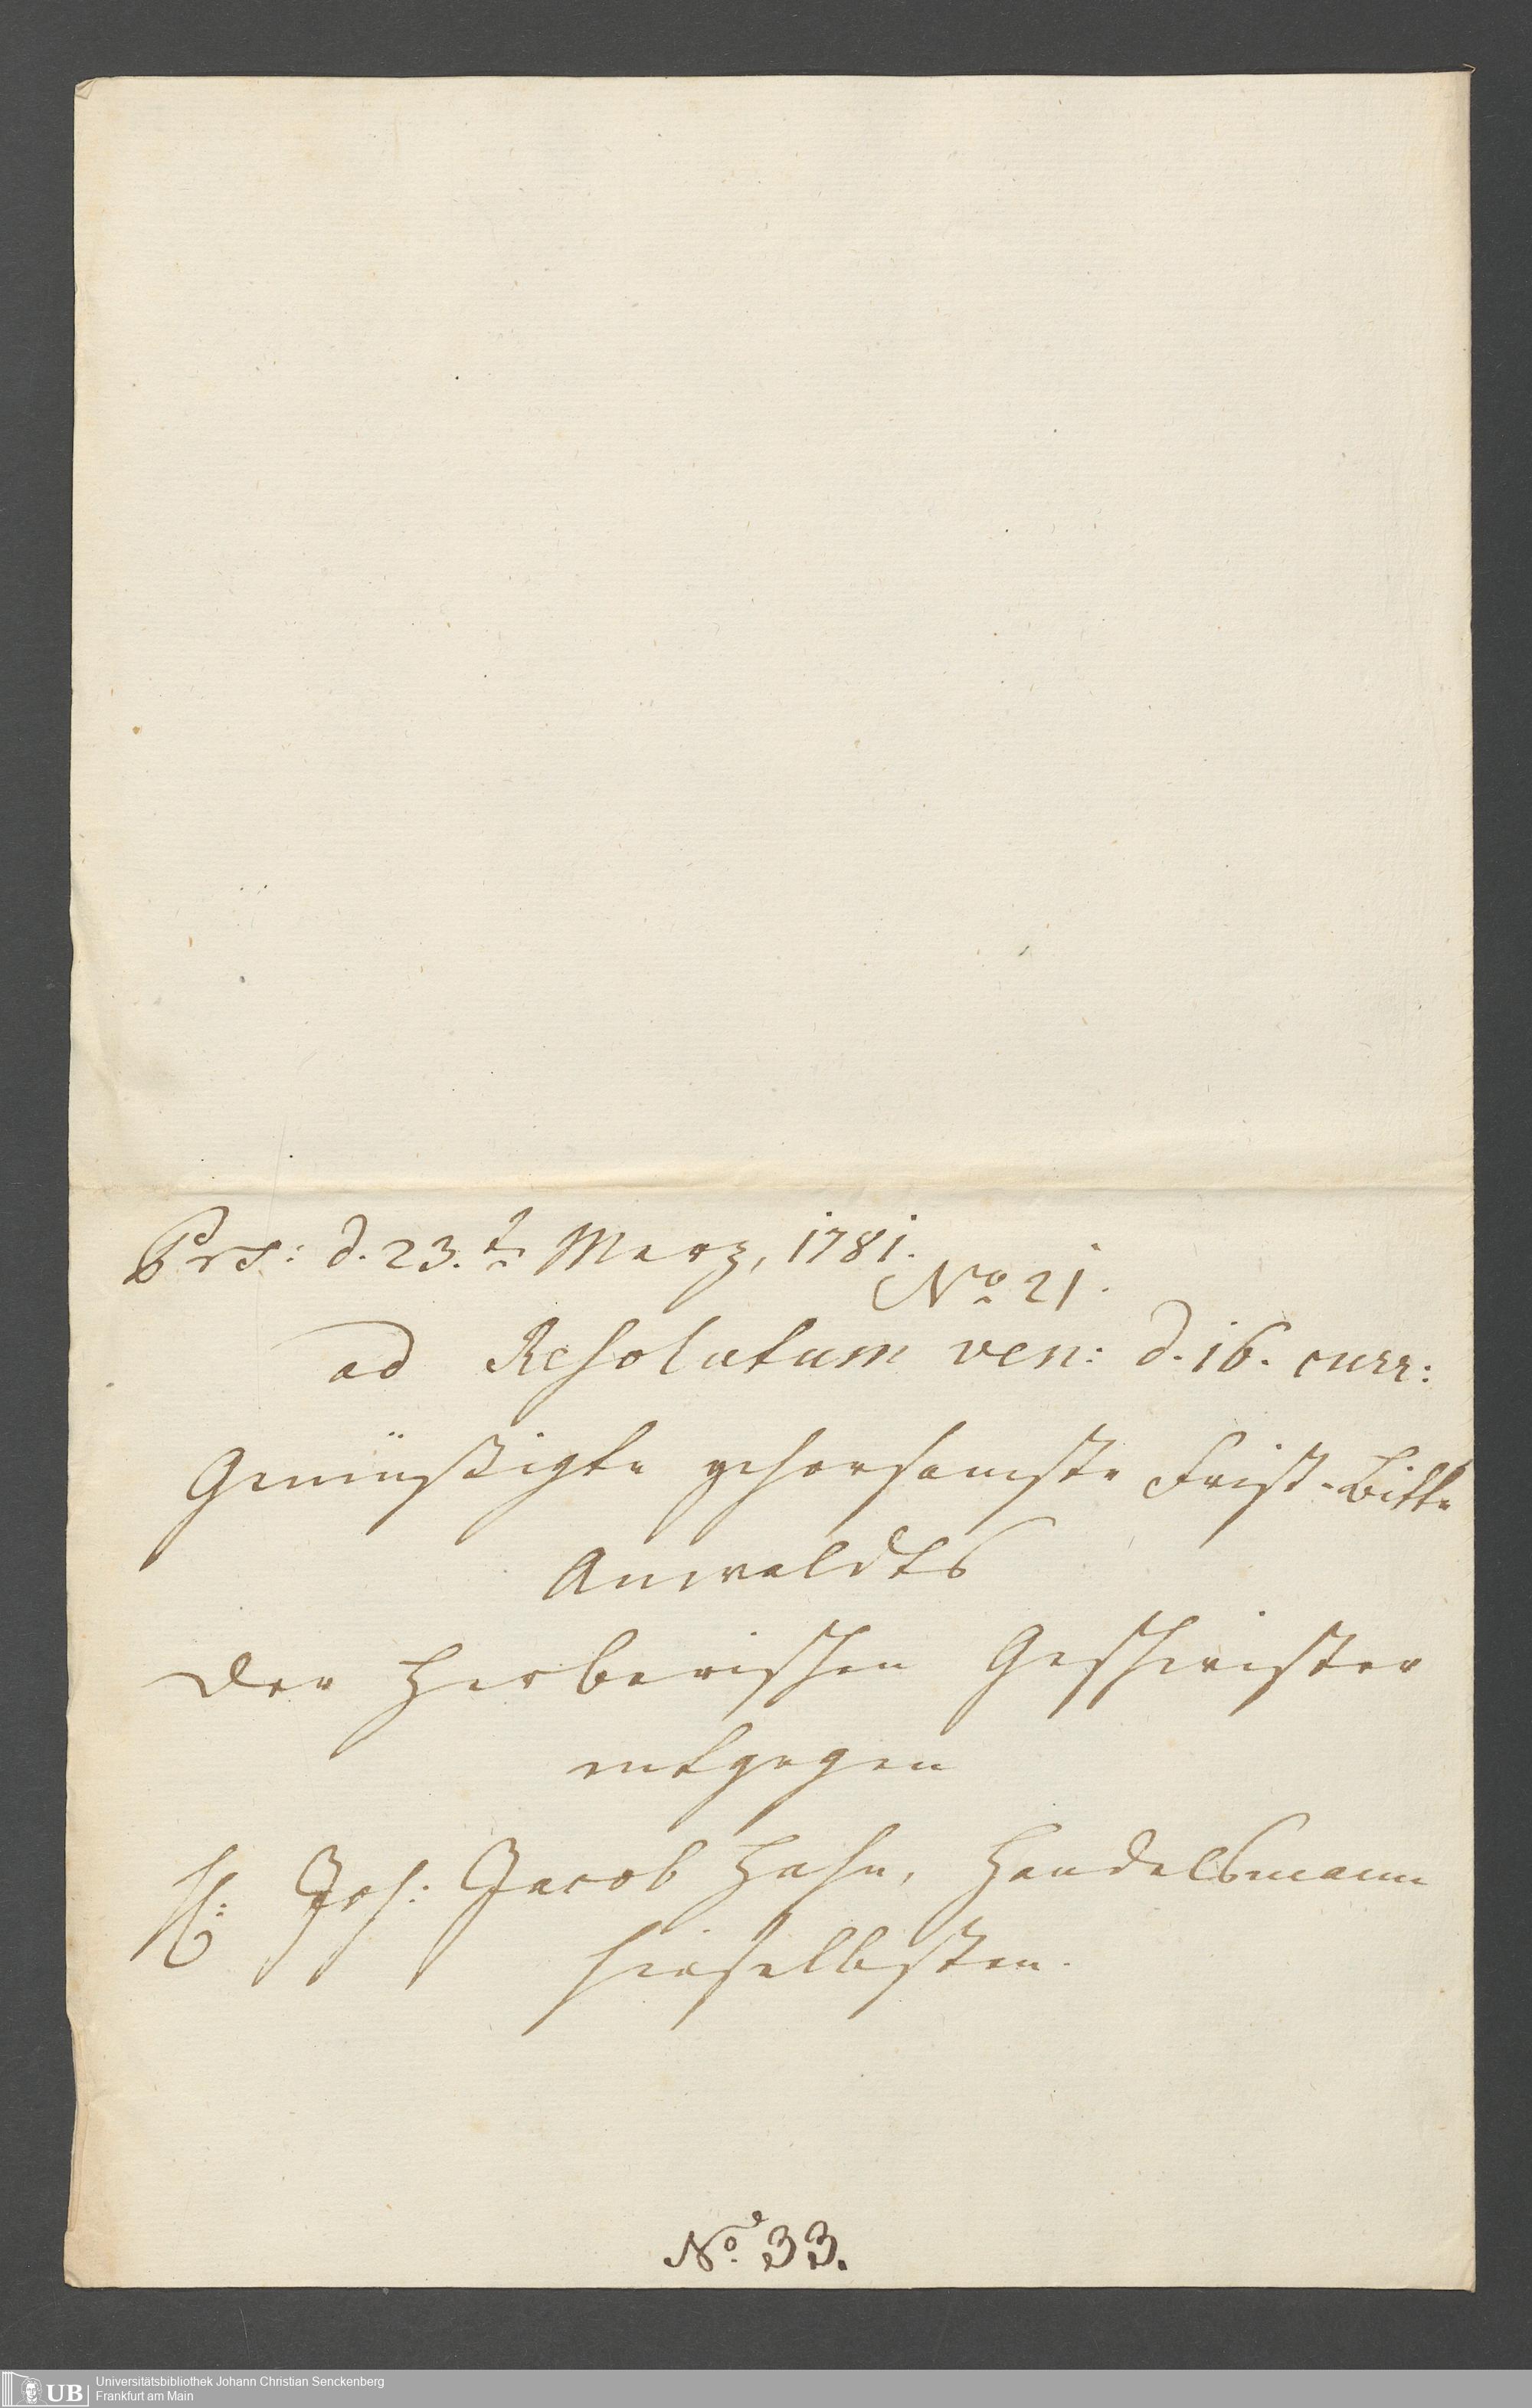 Prs: d. 23.t Merz, 1781.
No 21.
ad Resolutum ven: d. 16. curr:
Gemüßigte gehorsamste Frist-Bitte
Anwaldts
der Herberischen Geschwister
entgegen
H: Joh: Jacob Hahn, Handelsmann
hieselbsten.
No. 33.
UB Universitätsbibliothek Johann Christian Senckenberg
Frankfurt am Main